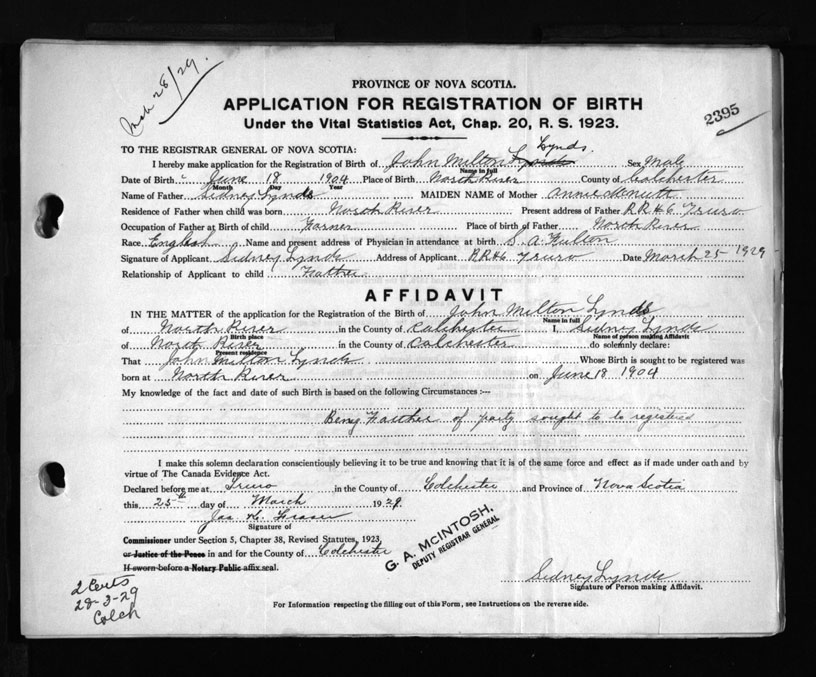 Mch 28/29.
PROVINCE OF NOVA SCOTIA.
APPLICATION FOR REGISTRATION OF BIRTH
Under the Vital Statistics Act, Chap. 20, R. S. 1923.
2395
TO THE REGISTRAR GENERAL OF NOVA SCOTIA:
Lynds.
I hereby make application for the Registration of Birth of John Milton Sex Male
Name in full
Date of Birth June 18 1904 Place of Birth North River County of Colchester
Month Day Year
Name of Father Sidney Lynds MAIDEN NAME of Mother Annie McNutt
Residence of Father when child was born North River Present address of Father RR#6 Truro
Occupation of Father at Birth of child Farmer Place of birth of Father North River
Race English Name and present address of Physician in attendance at birth S. A. Fulton
Signature of Applicant Sidney Lynds Address of Applicant RR#6 Truro Date March 25 1929
Relationship of Applicant to child Feather
AFFIDAVIT
IN THE MATTER of the application for the Registration of the Birth of John Milton Lynds
Name in full
of North River in the County of Colchester I, Sidney Lynds
Birth place Name of person making Affidavit
of North River in the County of Colchester do solemnly declare:
Present residence
That John Milton Lynds Whose Birth is sought to be registered was
born at North River on June 18 1904
My knowledge of the fact and date of such Birth is based on the following Circumstances :---
Being Faather of party sought to be registered
I make this solemn declaration conscientiously believing it to be true and knowing that it is of the same force and effect as if made under oath and by
virtue of The Canada Evidence Act.
Declared before me at Truro in the County of Colchester and Province of Nova Scotia
this 25th day of March 1929.
Jas. H. Fraser
Signature of
Commissioner under Section 5, Chapter 38, Revised Statutes, 1923,
or Justice of the Peace in and for the County of Colchester
If sworn before a Notary Public affix seal.
G. A. McINTOSH,
DEPUTY REGISTRAR GENERAL
Sidney Lynds
Signature of Person making Affidavit.
2 Certs
28-3-29
Colch
For Information respecting the filling out of this Form, see Instructions on the reverse side.